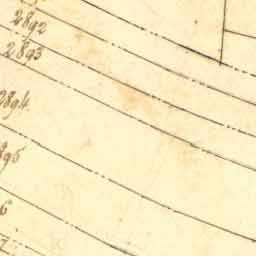 2892
2893
2894
895
6
7